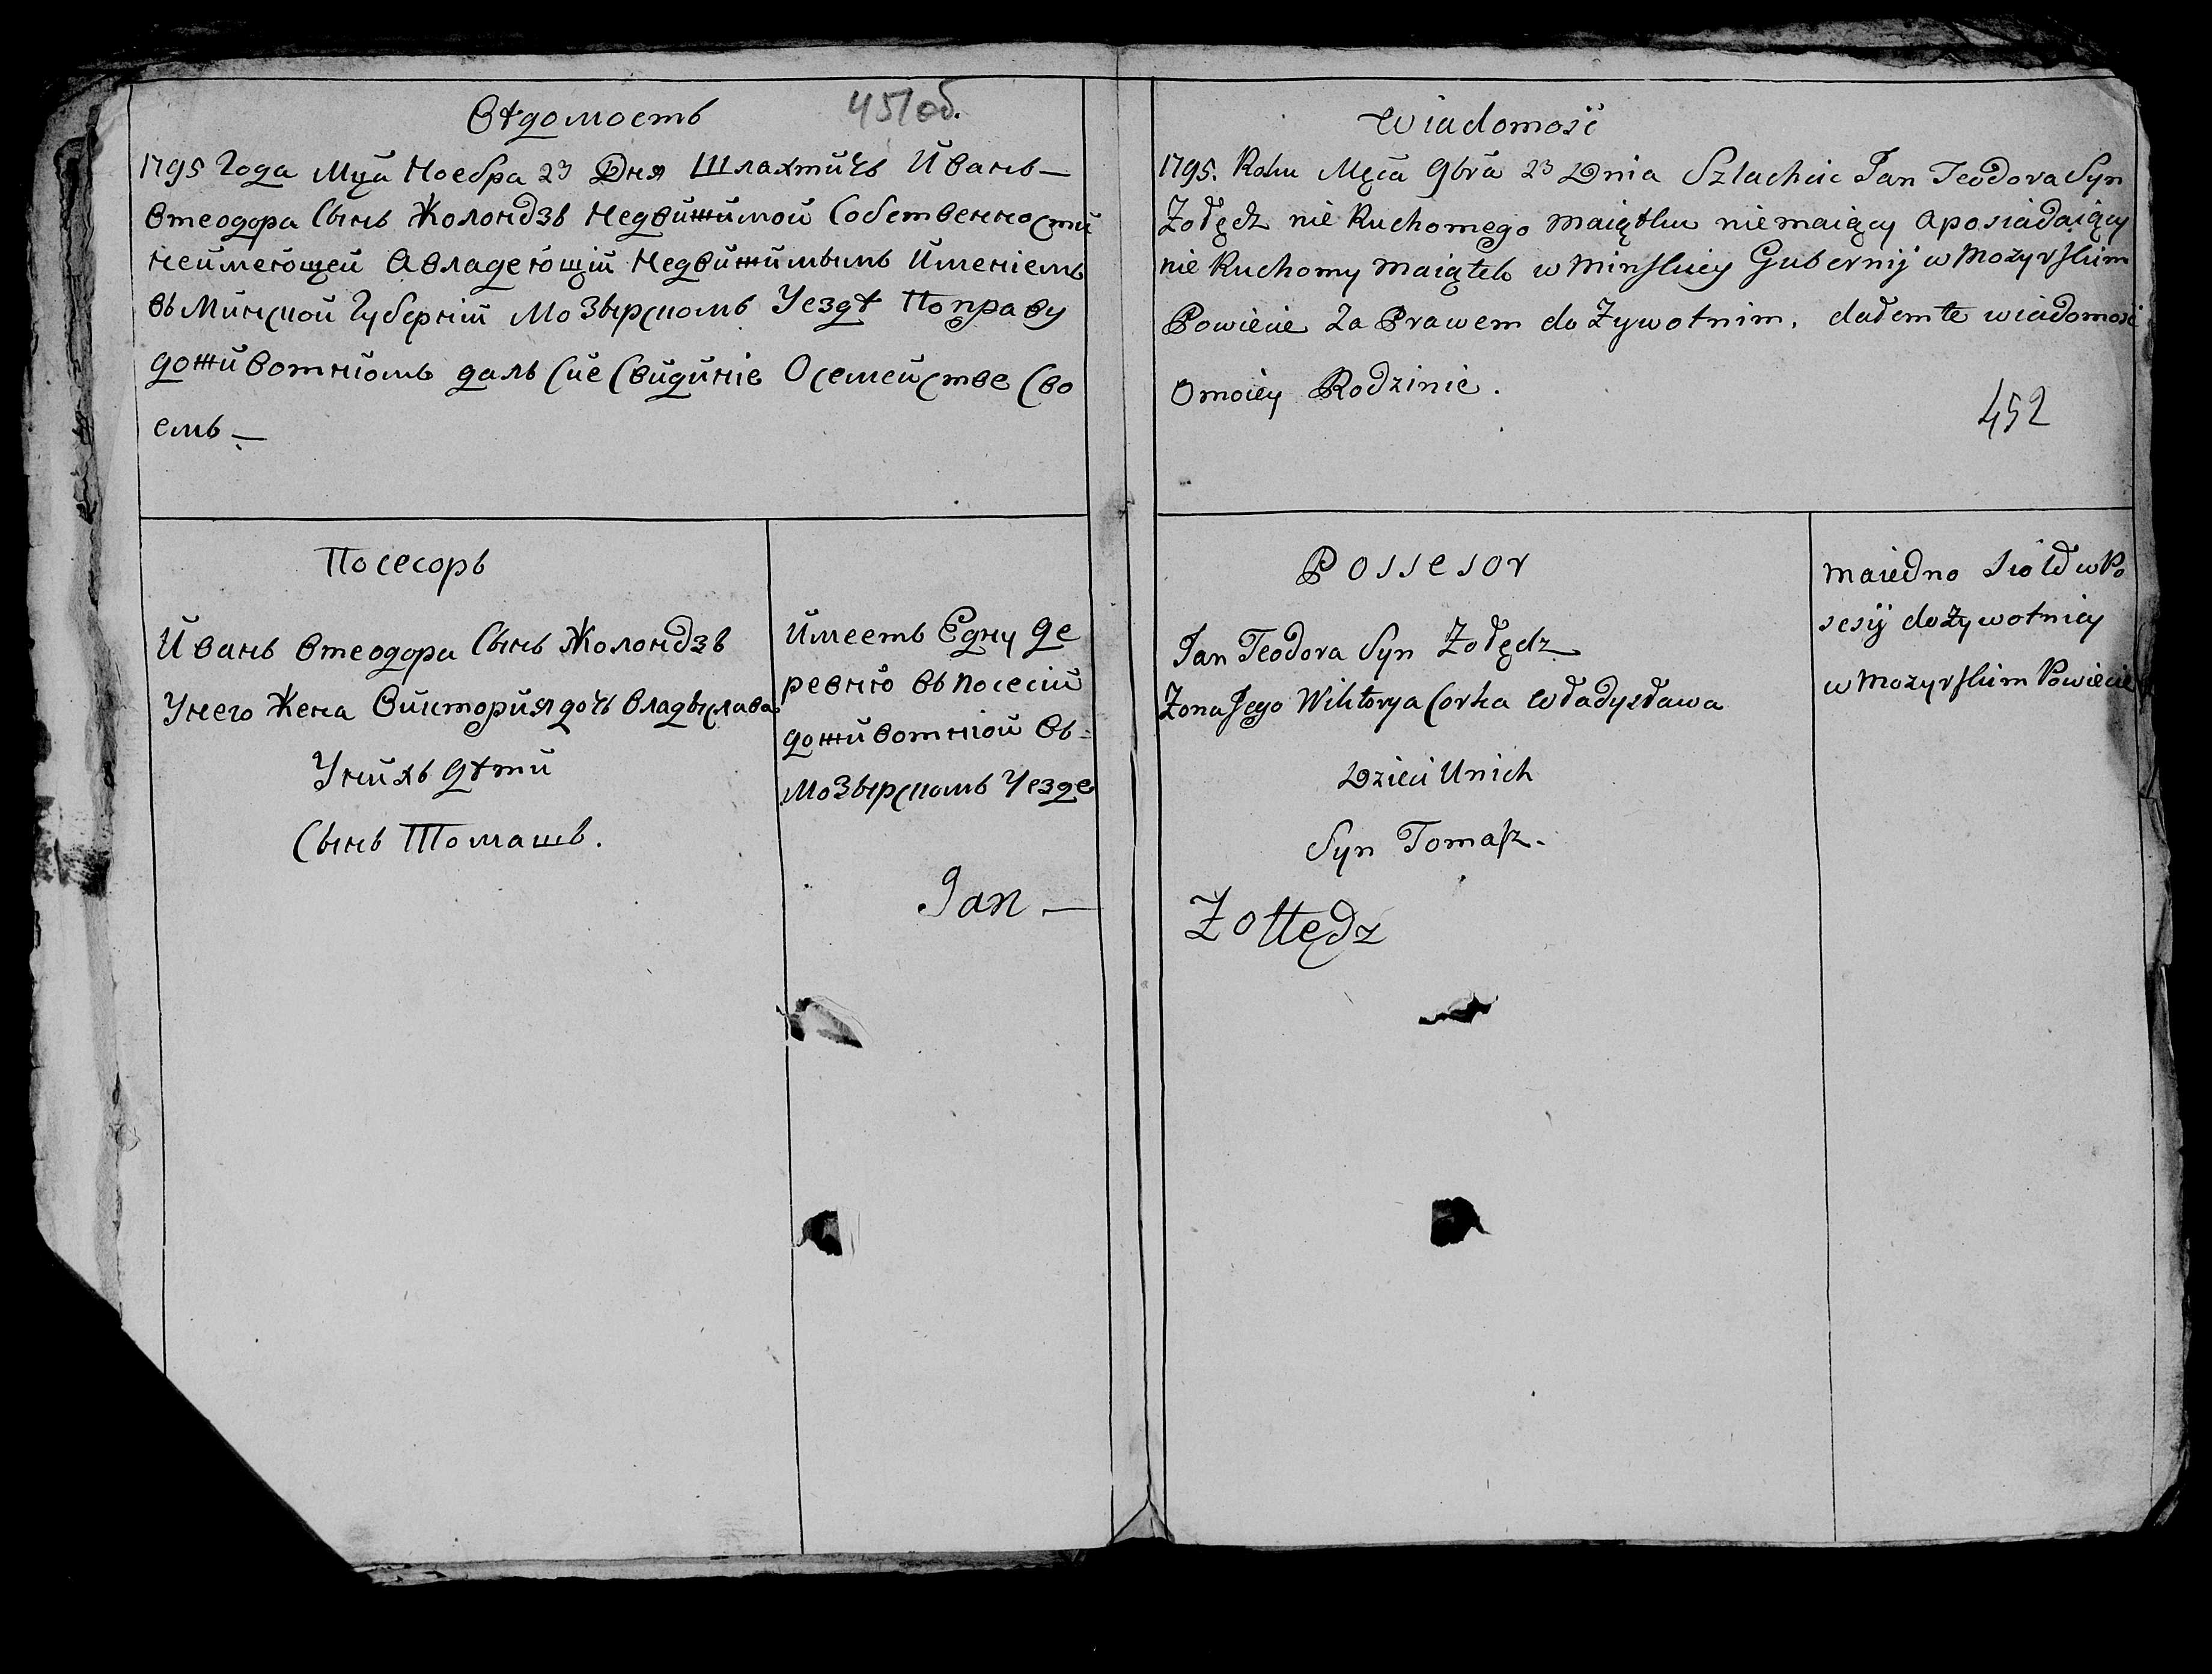 Вѣдомость
451об.
1795 Года Мца Ноебра 23 Дня Шляхтичъ Иванъ —
Ѳтеодора Сынъ Жолондзъ Недвижимой Собственности
неймеющей Авладеющій Недвижимымъ Именіемъ
въ Минской Губерніи Мозырскомъ Уездѣ По праву
доживотнюмъ далъ Сие Свидиніе О семействе Сво
емъ —
Посесоръ
Иванъ Ѳтеодора Сынъ Жолондзъ
Унего Жена Викторияя дочъ Владыслава
Унихъ дѣти
Сынъ Томашъ.
Имеетъ Едну де
ревню въ посесіи
доживотніой въ
Мозырскомъ Уезде
Jan —
Wiadomosć
1795. Roku Męca 9bra 23 Dnia Szlachcic Jan Teodora Syn
Żołędz nie Ruchomego maiątku niemaiący aposiadaiący
nie Ruchomy maiątek w Minskiey Gubernij w Mozyrskim
Powiecie Za Prawem do Żywotnim, dałem te wiadomosć
Omoiey Rodzinie.
452
Possesor
Jan Teodora Syn Żołędz
Żona Jego Wiktorya Corka Władysława
Dzieci Unich
Syn Tomasz.
Żołłędz
maiedno Sioło w Po
sesij dożywotniey
w Mozyrskim Powiecie